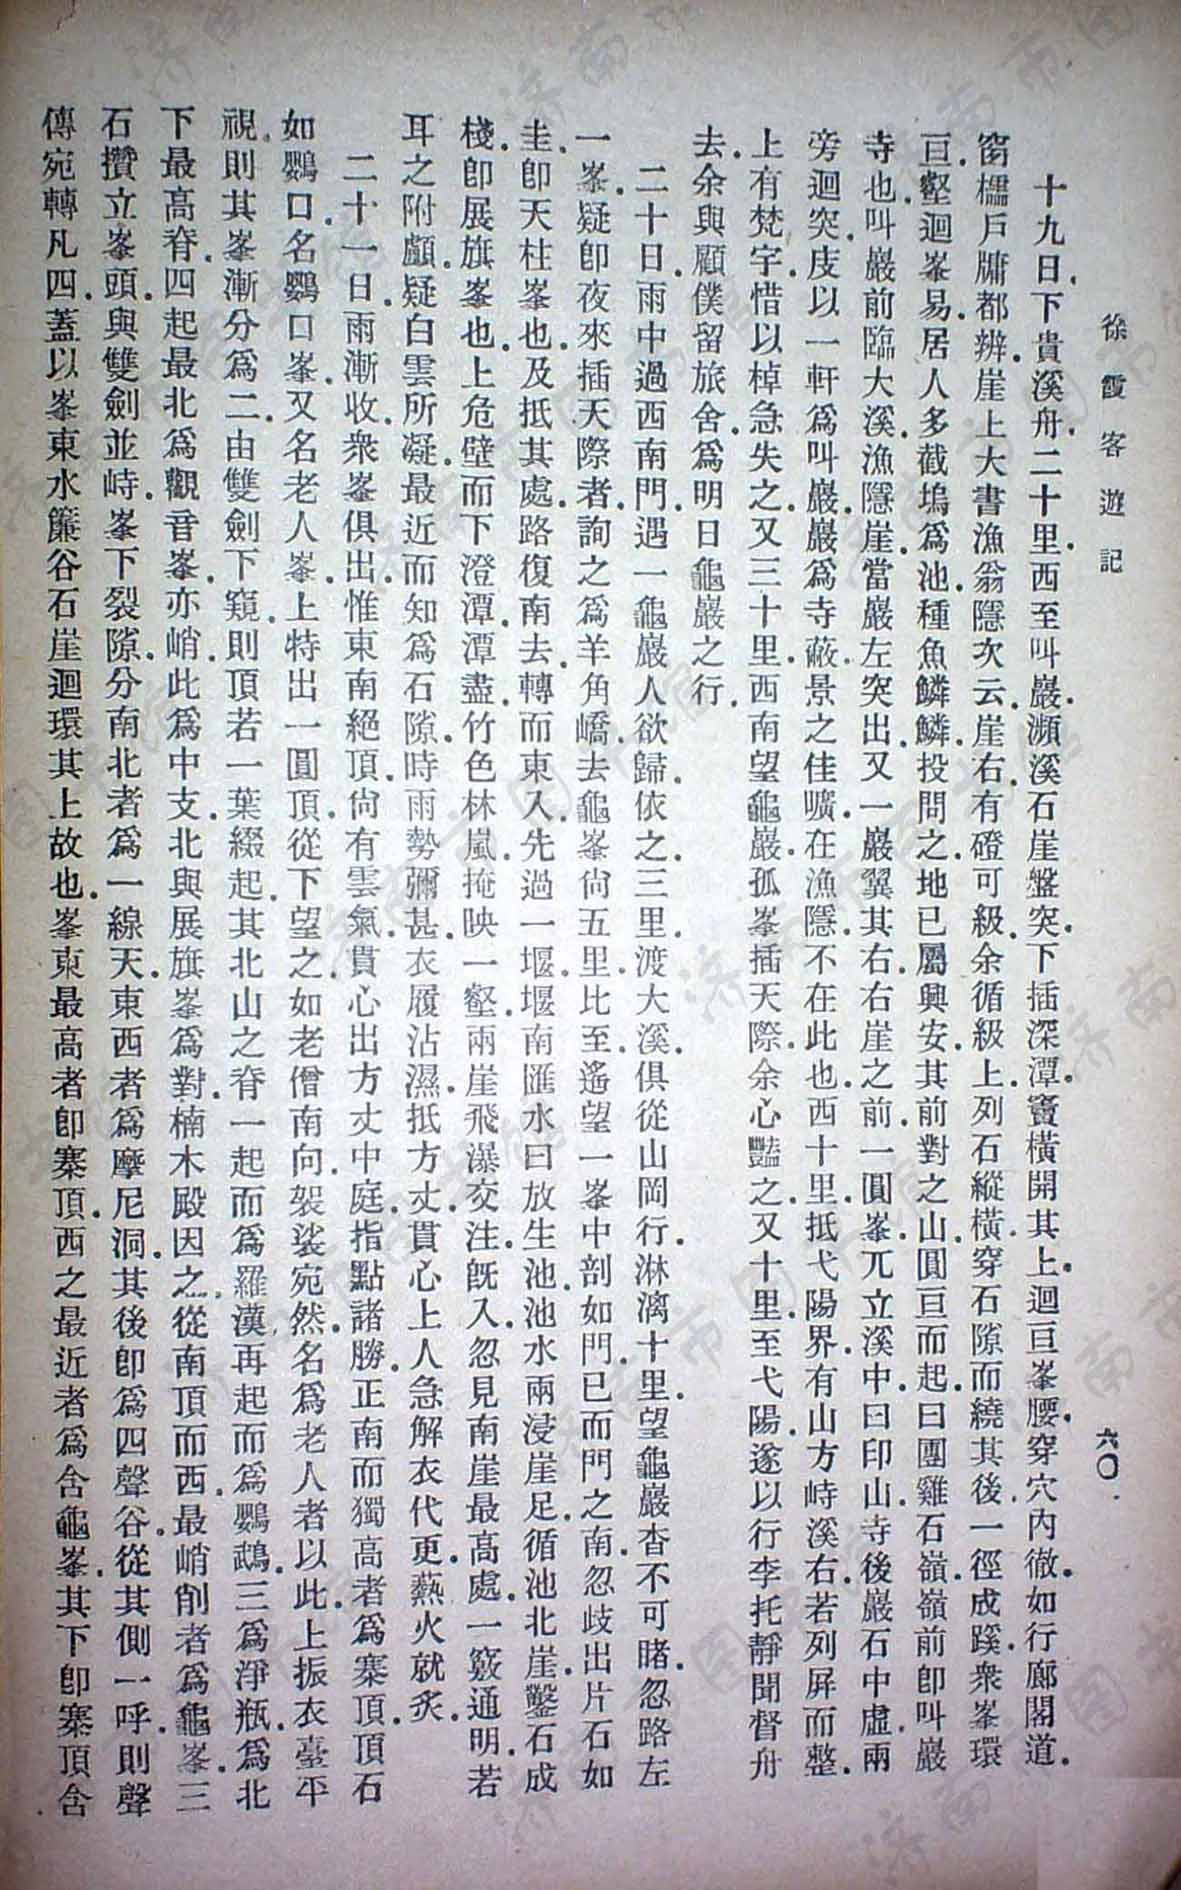 徐霞客遊記
六〇
十九日.下貴溪舟.二十里.西至叫巖.瀕溪石崖盤突.下插深潭.竇橫開其上.迴亘峯腰.穿穴內徹.如行廊閣道.
窗櫺戶牖都辨.崖上大書漁翁隱次云.崖右有磴可級.余循級上.列石縱橫.穿石隙而繞其後.一徑成蹊.衆峯環
亘.壑迴峯易.居人多截塢爲池種魚鱗鱗.投問之.地已屬興安.其前對之山.圓亘而起.曰團雞石嶺.嶺前卽叫巖
寺也.叫巖前臨大溪.漁隱崖.當巖左突出.又一巖翼其右.右崖之前.一圓峯.兀立溪中.曰印山.寺後巖石中虛.兩
旁迴突.庋以一軒.爲叫巖.巖爲寺蔽.景之佳曠.在漁隱.不在此也.西十里.抵弋陽界.有山方峙溪右.若列屏而整.
上有梵宇.惜以棹急失之.又三十里.西南望龜巖.孤峯插天際.余心豔之.又十里.至弋陽.遂以行李托靜聞督舟
去.余與顧僕留旅舍.爲明日龜巖之行.
二十日.雨中過西南門.遇一龜巖人欲歸.依之.三里.渡大溪.俱從山岡行.淋漓十里.望龜巖杳不可睹.忽路左
一峯.疑卽夜來插天際者.詢之爲羊角嶠.去龜峯尙五里.比至.遙望一峯中剖如門.已而門之南.忽歧出片石如
圭.卽天柱峯也.及抵其處.路復南去.轉而東入.先過一堰.堰南匯水曰放生池.池水兩浸崖足.循池北崖.鑿石成
棧.卽展旗峯也.上危壁而下澄潭.潭盡.竹色林嵐.掩映一壑.兩崖飛瀑交注.旣入.忽見南崖最高處.一竅通明.若
耳之附顱.疑白雲所凝.最近而知爲石隙.時雨勢彌甚.衣履沾濕.抵方丈.貫心上人急解衣代更.爇火就炙.
二十一日.雨漸收.衆峯俱出.惟東南絕頂.尙有雲氣.貫心出方丈中庭.指點諸勝.正南而獨高者爲寨頂.頂石
如鸚口.名鸚口峯.又名老人峯.上特出一圓頂.從下望之.如老僧南向.袈裟宛然.名爲老人者以此.上振衣臺平
視.則其峯漸分爲二.由雙劍下窺.則頂若一葉綴起.其北山之脊.一起而爲羅漢.再起而爲鸚鵡.三爲淨瓶.爲北
下最高脊.四起最北爲觀音峯.亦峭.此爲中支.北與展旗峯爲對.楠木殿因之.從南頂而西.最峭削者爲龜峯.三
石攢立峯頭.與雙劍並峙.峯下裂隙.分南北者爲一線天.東西者爲摩尼洞.其後卽爲四聲谷.從其側一呼.則聲
傳宛轉凡四.蓋以峯東水簾谷石崖迴環其上故也.峯東最高者卽寨頂.西之最近者爲含龜峯.其下卽寨頂含